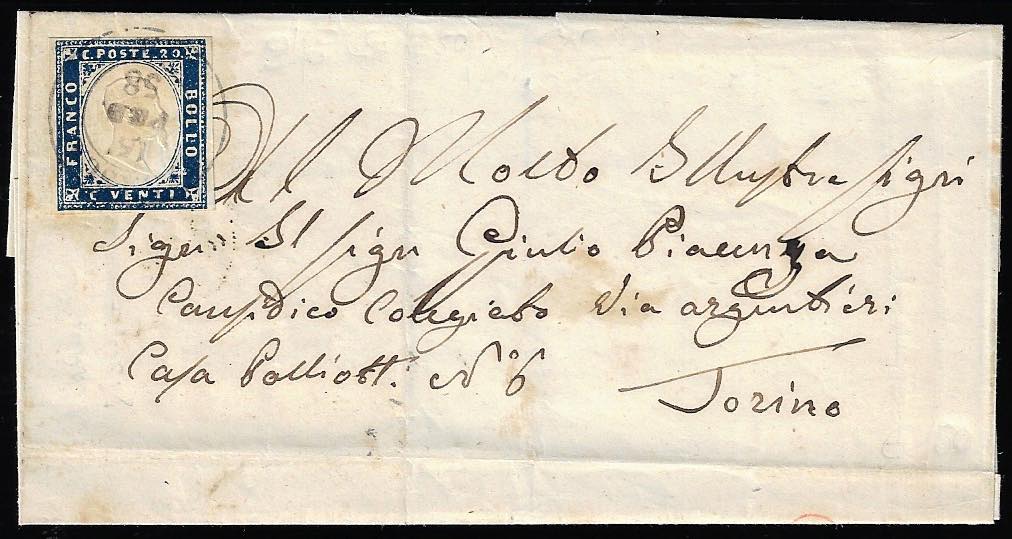 C. POSTE. 20
FRANCO
BOLLO
C VENTI
58
Al Molto Illustre Sigri
Sigri Il Sigri Giulio Piacenza
Causidico Colegiato Via argentieri
Casa Palliotti N° 6
Torino